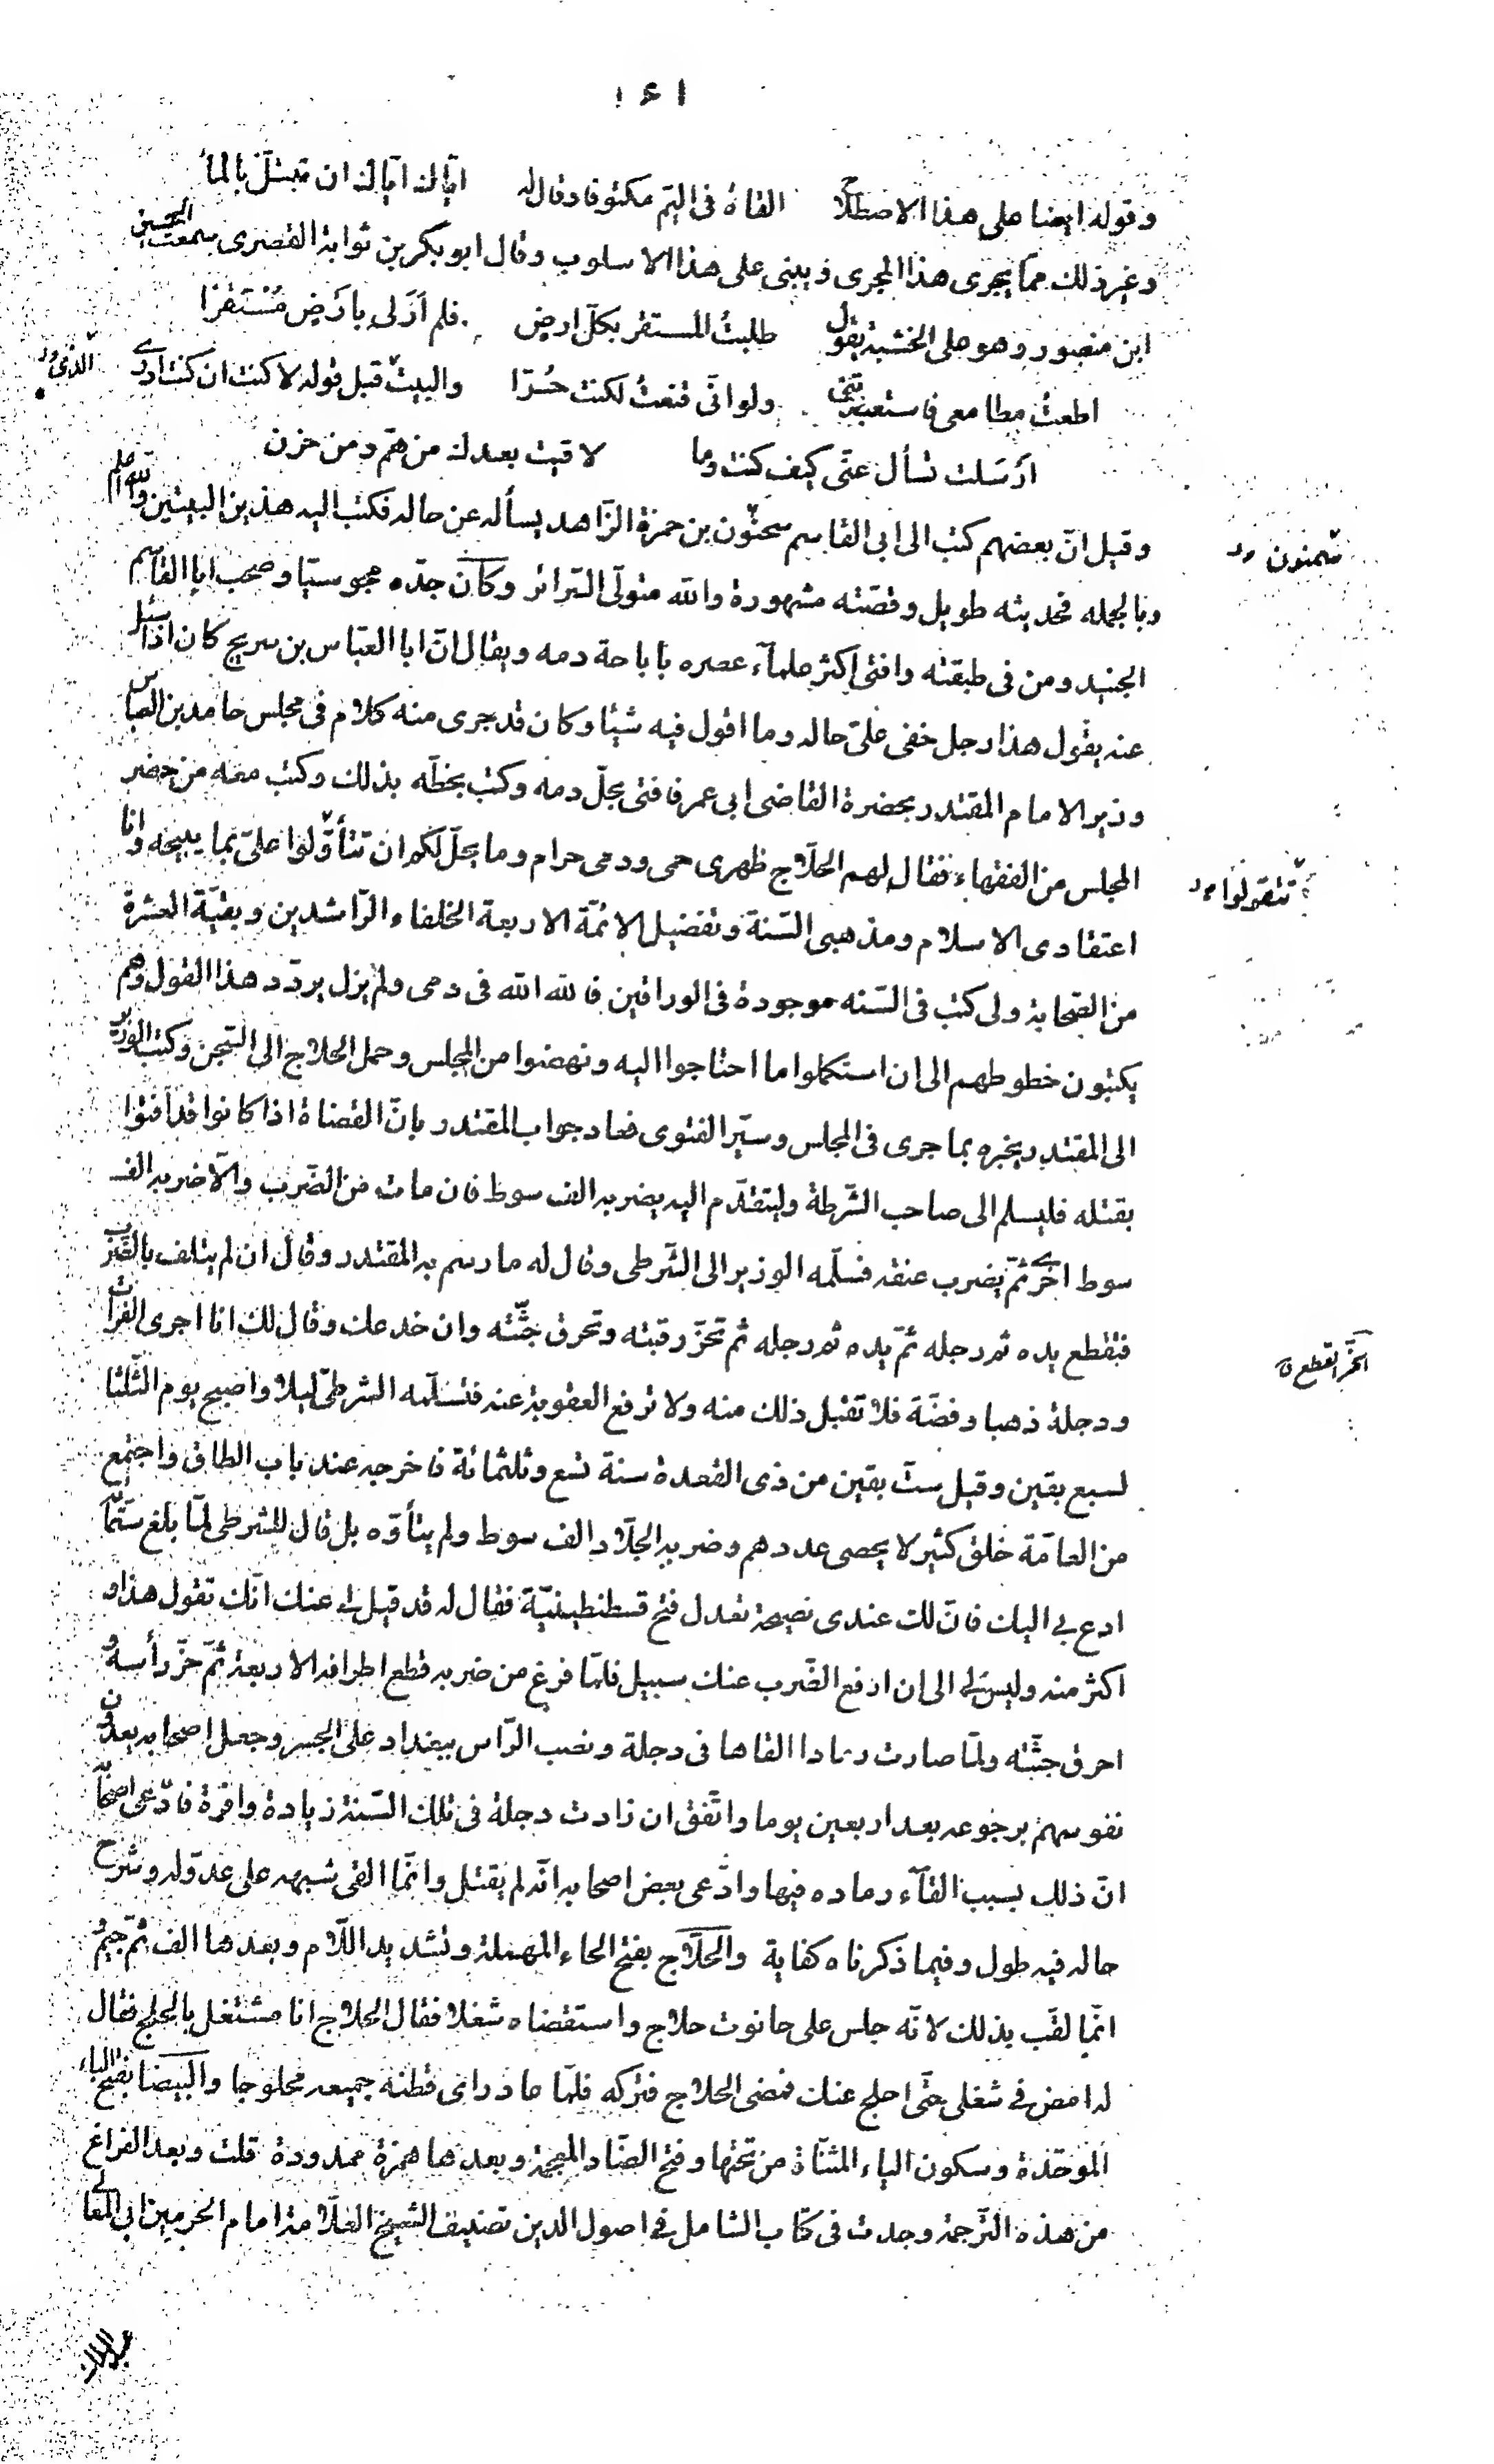 ١٤١
وقوله ايضا على هذا الاصطلاح القاه فى اليمّ مكتوفا وقال له ايّاك ايّاك ان تبتلّ بالماء
وغير ذلك ممّا يجرى هذا المجرى ويبنى على هذا الاسلوب وقال ابو بكر بن ثوابة القصرى سمعت الحسين
ابن منصور وهو على الخشبة يقول طلبتُ المستقر بكلّ ارض فلم اَرَ لى بارَضٍ مُسْتَقَرّا
اطعتُ مطامعى فاستعبدتنى ولو انّى قنعتُ لكنت حُرّا والبيت قبل قوله لا كنت ان كنت ادرى
الذى
اَرْسَلت تسأل عنّى كيف كنت وما لاقيت بعدك من همّ ومن حزن
وقيل انّ بعضهم كتب الى ابى القاسم سحنون بن حمزة الزاهد يسأله عن حاله فكتب اليه هذين البيتين والله اعلم
سمنون
وبالجمله فحديثه طويل وقصّته مشهورة والله متولّى السّرائر وكان جدّه مجوسيّا وصحب ابا القاسم
الجنيد ومن فى طبقته وافتى اكثر علمآء عصره باباحة دمه ويقال انّ ابا العبّاس بن سريج كان اذا سئل
عنه يقول هذا رجل خفى علىّ حاله وما اقول فيه شيئا وكان قد جرى منه كلام فى مجلس حامد بن العباس
وزير الامام المقتدر بحضرة القاضى ابى عمر فافتى بحلّ دمه وكتب بخطّه بذلك وكتب معه من حضر
المجلس من الفقهاء فقال لهم الحلّاج ظهرى حمى ودمى حرام وما يحلّ لكم ان تتأوّلوا علىّ بما يبيحه وانا
تتقولوا
اعتقادى الاسلام ومذهبى السّنة وتفضيل الائمّة الاربعة الخلفاء الرّاشدين وبقيّة العشرة
من الصّحابة ولى كتب فى السّنه موجودة فى الوراقين فالله الله فى دمى ولم يزل يردّد هذا القول وهم
يكتبون خطوطهم الى ان استكملوا ما احتاجوا اليه ونهضوا من المجلس وحمل الحلاج الى السّجن وكتب الوزير
الى المقتدر يخبره بما جرى فى المجلس وسيّر الفتوى فعاد جواب المقتدر بانّ القضاة اذا كانوا قد افتوا
بقتله فليسلم الى صاحب الشّرطة وليتقدّم اليه يضربه الف سوط فان مات من الضّرب والّا ضربه الف
سوط اخرى ثمّ يضرب عنقه فسلّمه الوزير الى الشّرطى وقال له ما رسم به المقتدر وقال ان لم يتلف بالضّرب
فيقطع يده ثم رجله ثمّ يده ثم رجله ثم تحزّ رقبته وتحرق جثّته وان خدعك وقال لك انا اجرى الفرات
الحزّ القطع
ودجلة ذهبا وفضّة فلا تقبل ذلك منه ولا ترفع العقوبة عنه فتسلّمه الشرطىّ ليلا واصبح يوم الثّلثا
لسبع بقين وقيل ستّ بقين من ذى القعدة سنة تسع وثلثمائة فاخرجه عند باب الطاق واجتمع
من العامّة خلق كثير لا يحصى عددهم وضربه الجلّاد الف سوط ولم يتأوّه بل قال للشرطى لمّا بلغ ستّمائة
ادع بى اليك فانّ لك عندى نصيحة تعدل فتح قسطنطينيّة فقال له قد قيل لى عنك انّك تقول هذا و
اكثر منه وليس لى الى ان ارفع الضّرب عنك سبيل فلمّا فرغ من ضربه قطع اطرافه الاربعة ثمّ حزّ رأسه و
احرق جثّته ولمّا صارت رمادا القاها فى دجلة ونصب الرّاس ببغداد على الجسر وجعل اصحابه يعدون
نفوسهم برجوعه بعد اربعين يوما واتّفق ان زادت دجلة فى تلك السّنة زيادة وافرة فادّعى اصحابه
انّ ذلك بسبب القآء رماده فيها وادّعى بعض اصحابه انّه لم يقتل وانّما القى شبهه على عدوّ له وشرح
حاله فيه طول وفيما ذكرناه كفاية والحلّاج بفتح الحاء المهملة وتشديد اللّام وبعدها الف ثمّ جيم و
انّما لقّب بذلك لانّه جلس على حانوت حلاج واستقضاه شغلا فقال الحلاج انا مشتغل بالحلج فقال
له امض فى شغلى حتّى احلج عنك فمضى الحلاج فتركه فلمّا عاد راى قطنه جميعه محلوجا والبيضا بفتح الباء
الموحّدة وسكون الياء المثنّاة من تحتها وفتح الضّاد المعجمة وبعدها همزة ممدودة قلت وبعد الفراغ
من هذه التّرجمة وجدت فى كتاب الشامل فى اصول الدين تصنيف الشيخ العلّامة امام الحرمين ابى المعالى